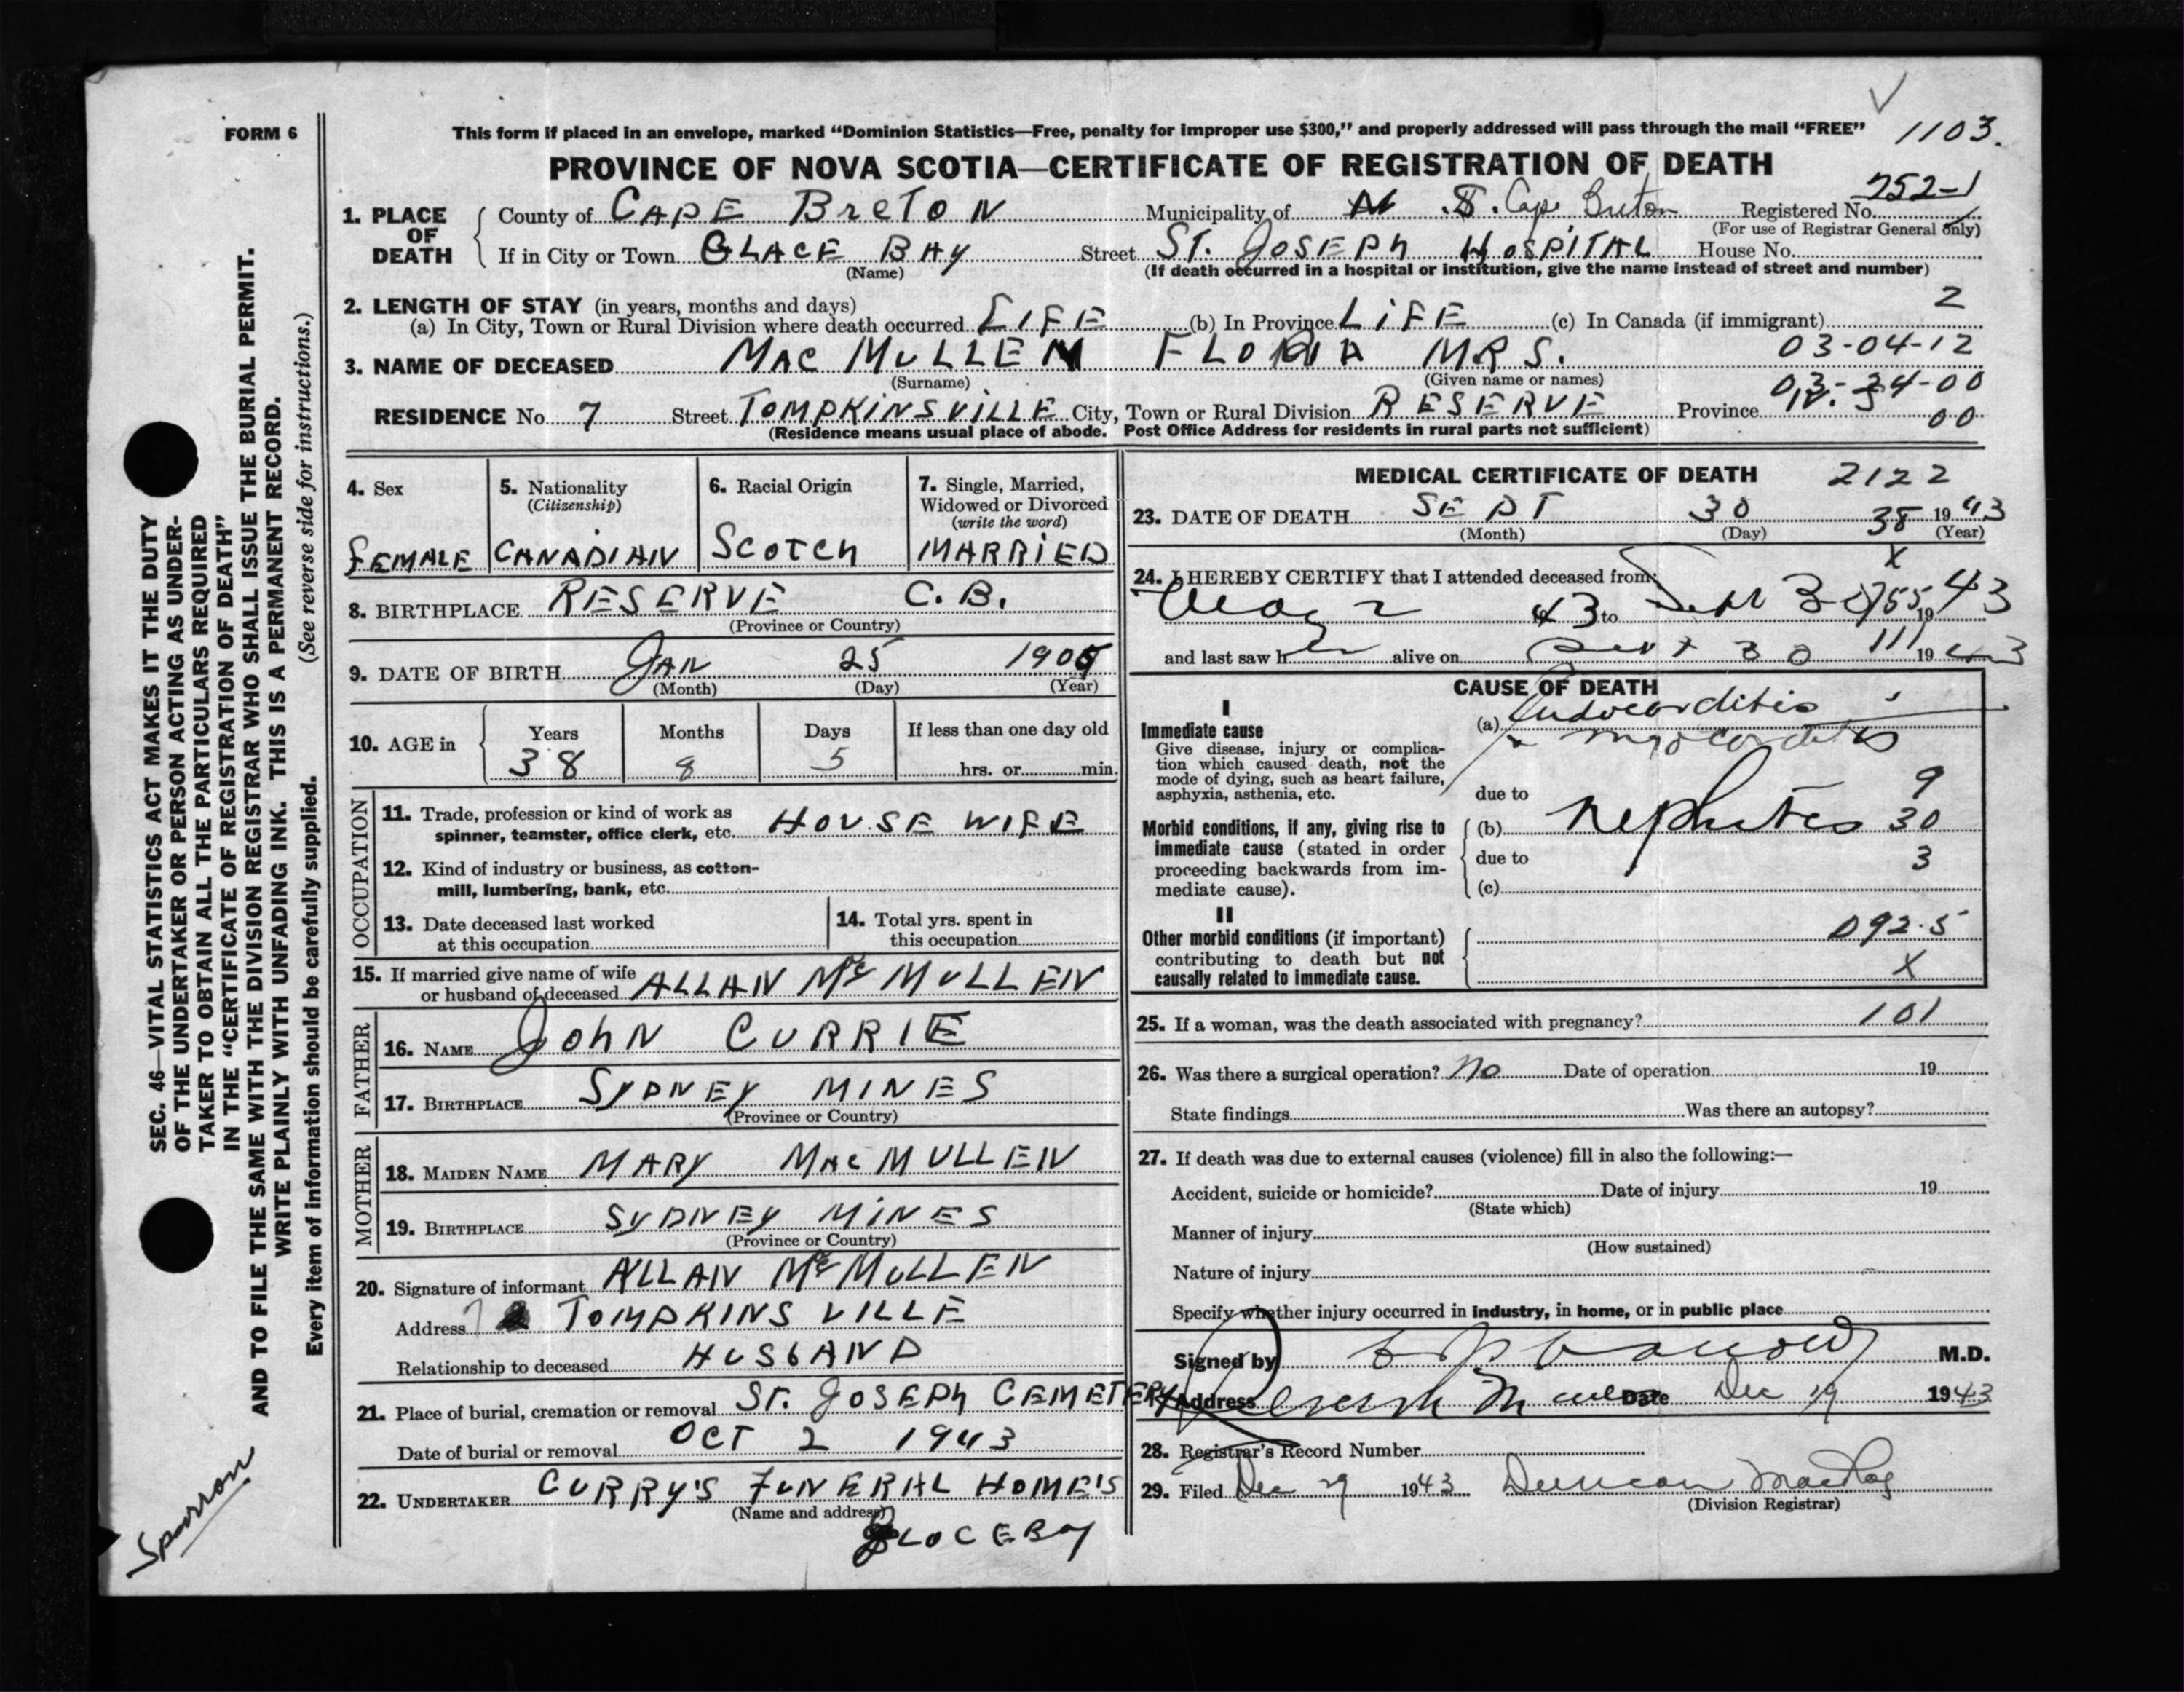 FORM 6
This form if placed in an envelope, marked “Dominion Statistics—Free, penalty for improper use $300,” and properly addressed will pass through the mail “FREE” 1103.
PROVINCE OF NOVA SCOTIA—CERTIFICATE OF REGISTRATION OF DEATH
1. PLACE OF DEATH County of CAPE BRETON Municipality of N. S. Cape Breton Registered No. 752-1
(For use of Registrar General only)
If in City or Town GLACE BAY Street ST. JOSEPH HOSPITAL House No.
(Name) (If death occurred in a hospital or institution, give the name instead of street and number)
2. LENGTH OF STAY (in years, months and days) 2
(a) In City, Town or Rural Division where death occurred LIFE (b) In Province LIFE (c) In Canada (if immigrant)
3. NAME OF DECEASED MACMULLEN FLORA MRS. 03-04-12
(Surname) (Given name or names)
RESIDENCE No. 7 Street TOMPKINSVILLE City, Town or Rural Division RESERVE Province 00
(Residence means usual place of abode. Post Office Address for residents in rural parts not sufficient)
4. Sex 5. Nationality (Citizenship) 6. Racial Origin 7. Single, Married, Widowed or Divorced (write the word)
FEMALE CANADIAN SCOTCH MARRIED
8. BIRTHPLACE RESERVE C.B.
(Province or Country)
9. DATE OF BIRTH JAN 25 1905
(Month) (Day) (Year)
10. AGE in Years Months Days If less than one day old
38 8 5 hrs. or min.
OCCUPATION
11. Trade, profession or kind of work as
spinner, teamster, office clerk, etc. HOUSE WIFE
12. Kind of industry or business, as cotton-
mill, lumbering, bank, etc.
13. Date deceased last worked
at this occupation
14. Total yrs. spent in
this occupation
15. If married give name of wife
or husband of deceased ALLAN McMULLEN
FATHER
16. NAME JOHN CURRIE
17. BIRTHPLACE SYDNEY MINES
(Province or Country)
MOTHER
18. MAIDEN NAME MARY MACMULLEN
19. BIRTHPLACE SYDNEY MINES
(Province or Country)
20. Signature of informant ALLAN McMULLEN
Address 7 TOMPKINSVILLE
Relationship to deceased HUSBAND
21. Place of burial, cremation or removal ST. JOSEPH CEMETERY
Date of burial or removal OCT 2 1943
22. UNDERTAKER CURRY'S FUNERAL HOME'S
(Name and address)
GLACE BAY
MEDICAL CERTIFICATE OF DEATH 2122
23. DATE OF DEATH SEPT 30 38 1943
(Month) (Day) (Year)
X
24. I HEREBY CERTIFY that I attended deceased from
May 2 43 to Sept 30 1943
and last saw her alive on Sept 30 111 1943
CAUSE OF DEATH
I
Immediate cause
Give disease, injury or complica-
tion which caused death, not the
mode of dying, such as heart failure,
asphyxia, asthenia, etc.
(a) Endocarditis
myocarditis
due to 9
Morbid conditions, if any, giving rise to
immediate cause (stated in order
proceeding backwards from im-
mediate cause).
(b) Nephritis 30
due to 3
(c)
II
Other morbid conditions (if important)
contributing to death but not
causally related to immediate cause.
092.5
X
25. If a woman, was the death associated with pregnancy? 101
26. Was there a surgical operation? No Date of operation 19
State findings Was there an autopsy?
27. If death was due to external causes (violence) fill in also the following:—
Accident, suicide or homicide? Date of injury 19
(State which)
Manner of injury
(How sustained)
Nature of injury
Specify whether injury occurred in industry, in home, or in public place
Signed by M.D.
Address Date Dec 19 1943
28. Registrar's Record Number
29. Filed Dec 29 1943 Duncan
(Division Registrar)
SEC. 46—VITAL STATISTICS ACT MAKES IT THE DUTY
OF THE UNDERTAKER OR PERSON ACTING AS UNDER-
TAKER TO OBTAIN ALL THE PARTICULARS REQUIRED
IN THE “CERTIFICATE OF REGISTRATION OF DEATH”
AND TO FILE THE SAME WITH THE DIVISION REGISTRAR WHO SHALL ISSUE THE BURIAL PERMIT.
WRITE PLAINLY WITH UNFADING INK. THIS IS A PERMANENT RECORD.
Every item of information should be carefully supplied. (See reverse side for instructions.)
Sparrow